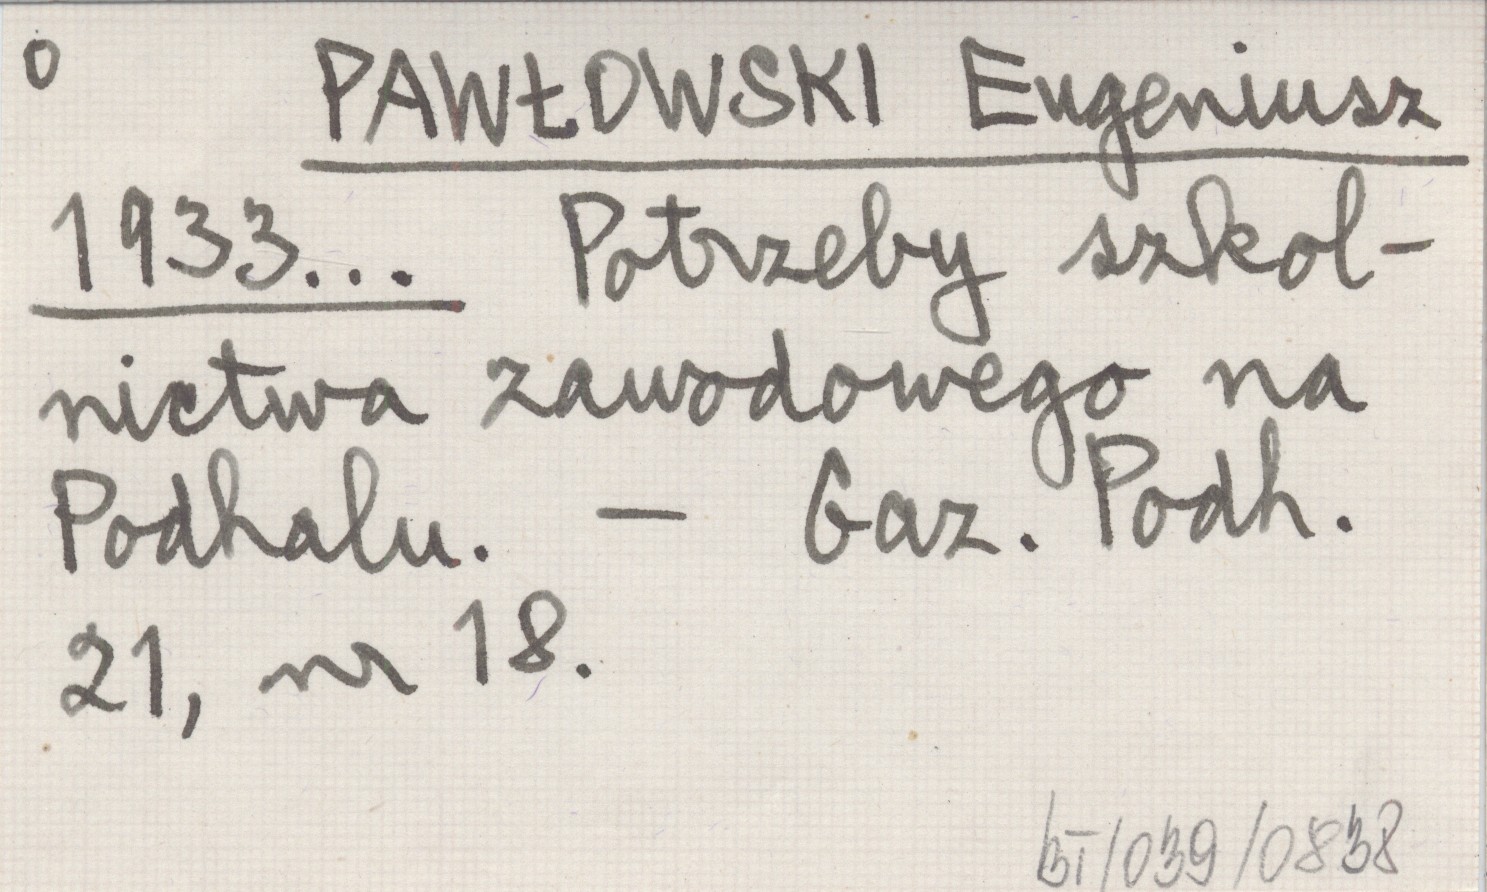 o PAWŁOWSKI Eugeniusz
1933... Potrzeby szkol-
nictwa zawodowego na
Podhalu. — Gaz. Podh.
21, nr 18.
bI/039/0838